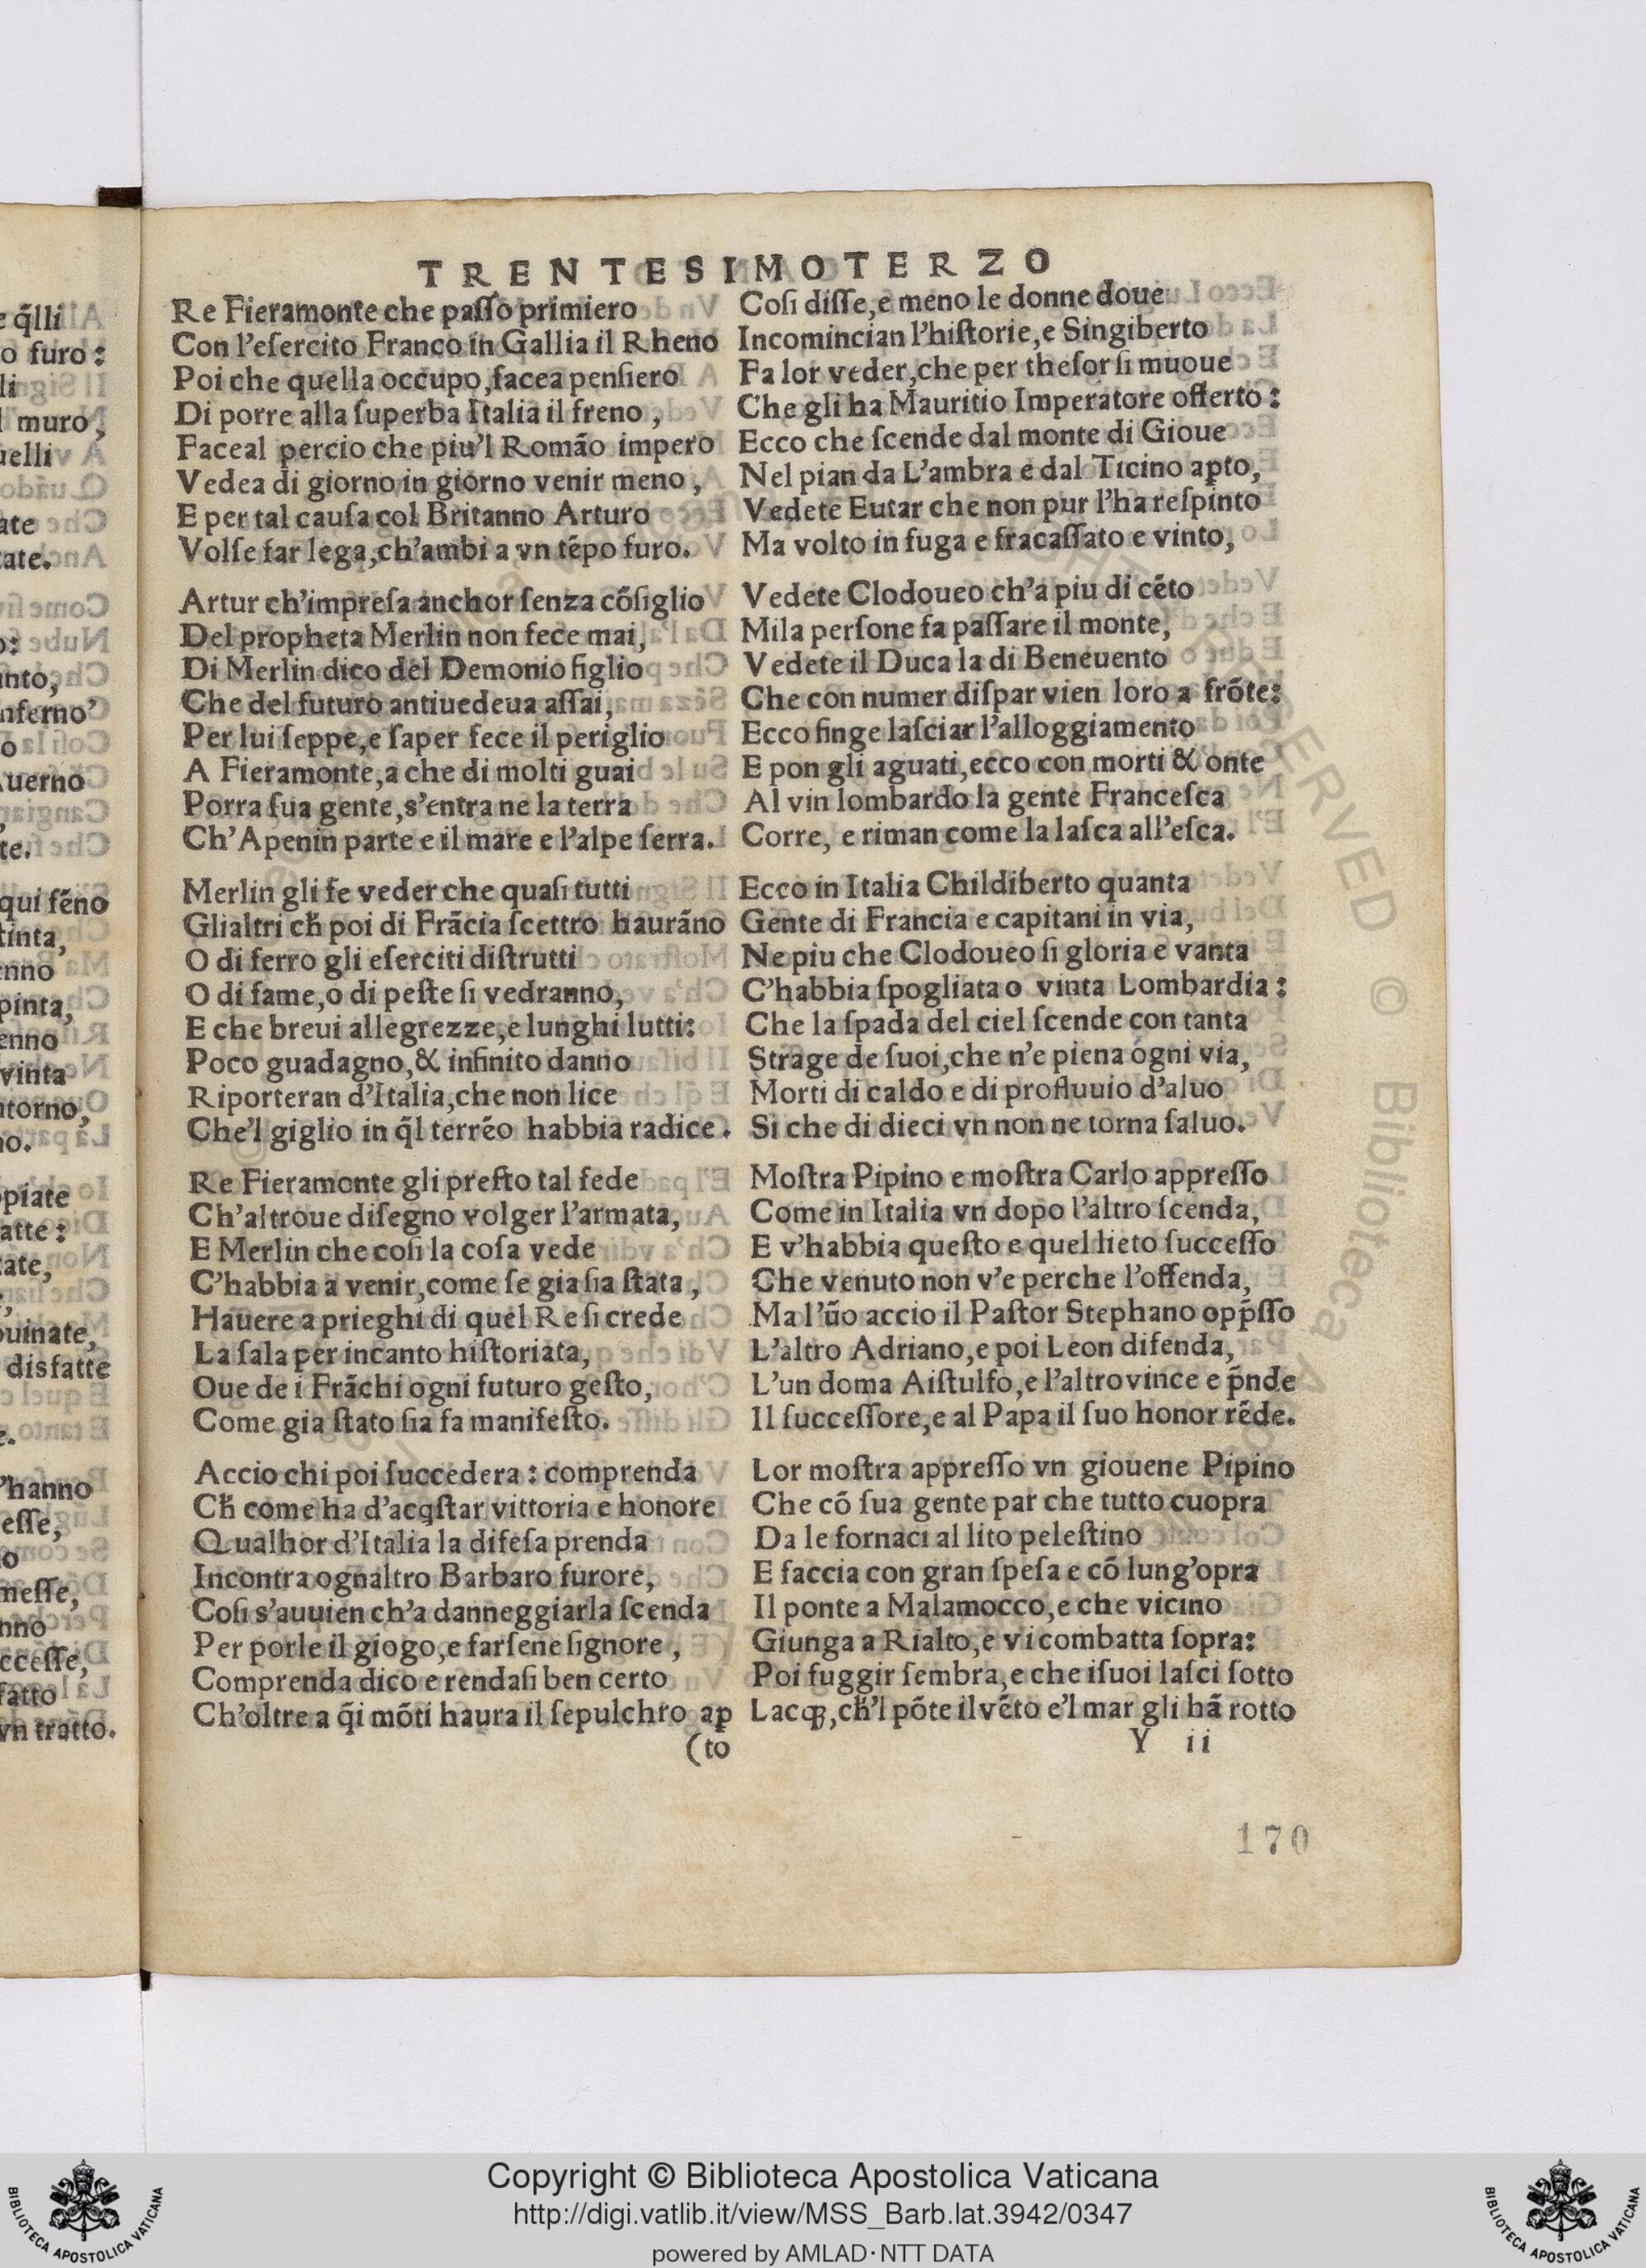 TRENTESIMOTERZO
Re Fieramonte che paſſo primiero
Con l'eſercito Franco in Gallia il Rheno
Poi che quella occupo, facea penſiero
Di porre alla ſuperba Italia il freno,
Faceal percio che piu'l Romāo impero
Vedea di giorno in giorno venir meno,
E per tal cauſa col Britanno Arturo
Volſe far lega, ch'ambi a vn tēpo furo.
Artur ch'impreſa anchor ſenza cōſiglio
Del propheta Merlin non fece mai,
Di Merlin dico del Demonio figlio
Che del futuro antiuedeua aſſai,
Per lui ſeppe, e ſaper fece il periglio
A Fieramonte, a che di molti guai
Porra ſua gente, s'entra ne la terra
Ch'Apenin parte e il mare e l'alpe ſerra.
Merlin gli fe veder che quaſi tutti
Glialtri ch̄ poi di Frācia ſcettro haurāno
O di ferro gli eſerciti diſtrutti
O di fame, o di peſte ſi vedranno,
E che breui allegrezze, e lunghi lutti:
Poco guadagno, & infinito danno
Riporteran d'Italia, che non lice
Che'l giglio in q̄l terrēo habbia radice.
Re Fieramonte gli preſto tal fede
Ch'altroue diſegno volger l'armata,
E Merlin che coſi la coſa vede
C'habbia a venir, come ſe gia ſia ſtata,
Hauere a prieghi di quel Re ſi crede
La ſala per incanto hiſtoriata,
Oue de i Frāchi ogni futuro geſto,
Come gia ſtato ſia fa manifeſto.
Accio chi poi ſuccedera: comprenda
Ch̄ come ha d'acqſtar vittoria e honore
Qualhor d'Italia la difeſa prenda
Incontra ognaltro Barbaro furore,
Coſi s'auuien ch'a danneggiarla ſcenda
Per porle il giogo, e farſene ſignore,
Comprenda dico e rendaſi ben certo
Ch'oltre a q̄i mōti haura il ſepulchro aꝑ
(to
Coſi diſſe, e meno le donne doue
Incomincian l'hiſtorie, e Singiberto
Fa lor veder, che per theſor ſi muoue
Che gli ha Mauritio Imperatore offerto:
Ecco che ſcende dal monte di Gioue
Nel pian da L'ambra e dal Ticino aꝑto,
Vedete Eutar che non pur l'ha reſpinto
Ma volto in fuga e fracaſſato e vinto,
Vedete Clodoueo ch'a piu di cēto
Mila perſone fa paſſare il monte,
Vedete il Duca la di Beneuento
Che con numer diſpar vien loro a frōte:
Ecco finge laſciar l'alloggiamento
E pon gli aguati, ecco con morti & onte
Al vin lombardo la gente Franceſca
Corre, e riman come la laſca all'eſca.
Ecco in Italia Childiberto quanta
Gente di Francia e capitani in via,
Ne piu che Clodoueo ſi gloria e vanta
C'habbia ſpogliata o vinta Lombardia:
Che la ſpada del ciel ſcende con tanta
Strage de ſuoi, che n'e piena ogni via,
Morti di caldo e di profluuio d'aluo
Si che di dieci vn non ne torna ſaluo.
Moſtra Pipino e moſtra Carlo appreſſo
Come in Italia vn dopo l'altro ſcenda,
E v'habbia queſto e quel lieto ſucceſſo
Che venuto non v'e perche l'offenda,
Ma l'ūo accio il Paſtor Stephano opp̄ſſo
L'altro Adriano, e poi Leon difenda,
L'un doma Aiſtulfo, e l'altro vince e p̄nde
Il ſucceſſore, e al Papa il ſuo honor rēde.
Lor moſtra appreſſo vn giouene Pipino
Che cō ſua gente par che tutto cuopra
Da le fornaci al lito peleſtino
E faccia con gran ſpeſa e cō lung'opra
Il ponte a Malamocco, e che vicino
Giunga a Rialto, e vi combatta ſopra:
Poi fuggir ſembra, e che iſuoi laſci ſotto
Lacq̄, ch̄'l pōte il vēto e'l mar gli hā rotto
Y ii
170
Copyright © Biblioteca Apostolica Vaticana
http://digi.vatlib.it/view/MSS_Barb.lat.3942/0347
powered by AMLAD·NTT DATA
BIBLIOTECA APOSTOLICA VATICANA
BIBLIOTECA APOSTOLICA VATICANA